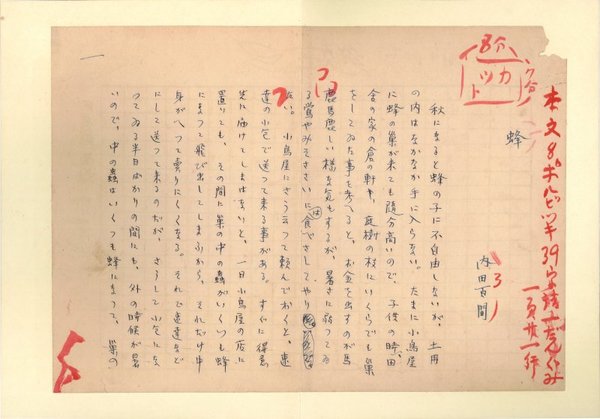 本文8ポルビ半39字詰
一頁廿一行
カット
蜂
内田百間
秋になると蜂の子に不自由しないが、土用
の内はなかなか手に入らない。たまに小鳥屋
に蜂の巣が来ても随分高いので、子供の時田
舎の家の倉の軒や、庭樹の枝にいくらでも巣
をしてゐた事を考へると、お金を出すのが馬
鹿馬鹿しい様な気もするが、暑さに弱つてゐ
る鶯やみそさざいには食べさしてやり
ない。小鳥屋にさう云つて頼んでおくと、速
達の小包で送つて来る事がある。すぐに得意
先に届けてしまはないと、一日小鳥屋の店に
置いても、その間に巣の中の蟲がいくつも蜂
になつて飛び出してしまふから、それだけ中
身がへつて売りにくくなる。それで速達など
にして送つて来るのだが、さうして小包にな
つてゐる半日ばかりの間にも、外の時候が暑
いので、中の蟲はいくつも蜂になつて、巣の
一